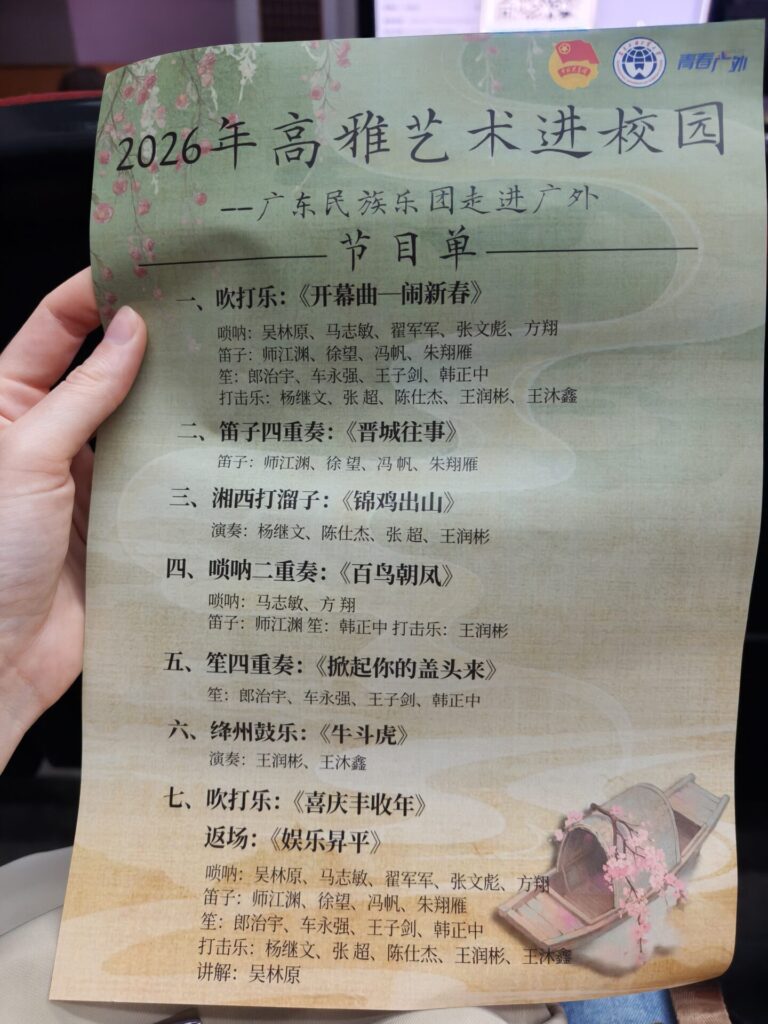 青春广外
2026年高雅艺术进校园
--广东民族乐团走进广外
节目单
一、吹打乐：《开幕曲—闹新春》
唢呐：吴林原、马志敏、翟军军、张文彪、方翔
笛子：师江渊、徐望、冯帆、朱翔雁
笙：郎治宇、车永强、王子剑、韩正中
打击乐：杨继文、张 超、陈仕杰、王润彬、王沐鑫
二、笛子四重奏：《晋城往事》
笛子：师江渊、徐 望、冯 帆、朱翔雁
三、湘西打溜子：《锦鸡出山》
演奏：杨继文、陈仕杰、张 超、王润彬
四、唢呐二重奏：《百鸟朝凤》
唢呐：马志敏、方 翔
笛子：师江渊 笙：韩正中 打击乐：王润彬
五、笙四重奏：《掀起你的盖头来》
笙：郎治宇、车永强、王子剑、韩正中
六、绛州鼓乐：《牛斗虎》
演奏：王润彬、王沐鑫
七、吹打乐：《喜庆丰收年》
返场：《娱乐昇平》
唢呐：吴林原、马志敏、翟军军、张文彪、方翔
笛子：师江渊、徐望、冯帆、朱翔雁
笙：郎治宇、车永强、王子剑、韩正中
打击乐：杨继文、张 超、陈仕杰、王润彬、王沐鑫
讲解：吴林原